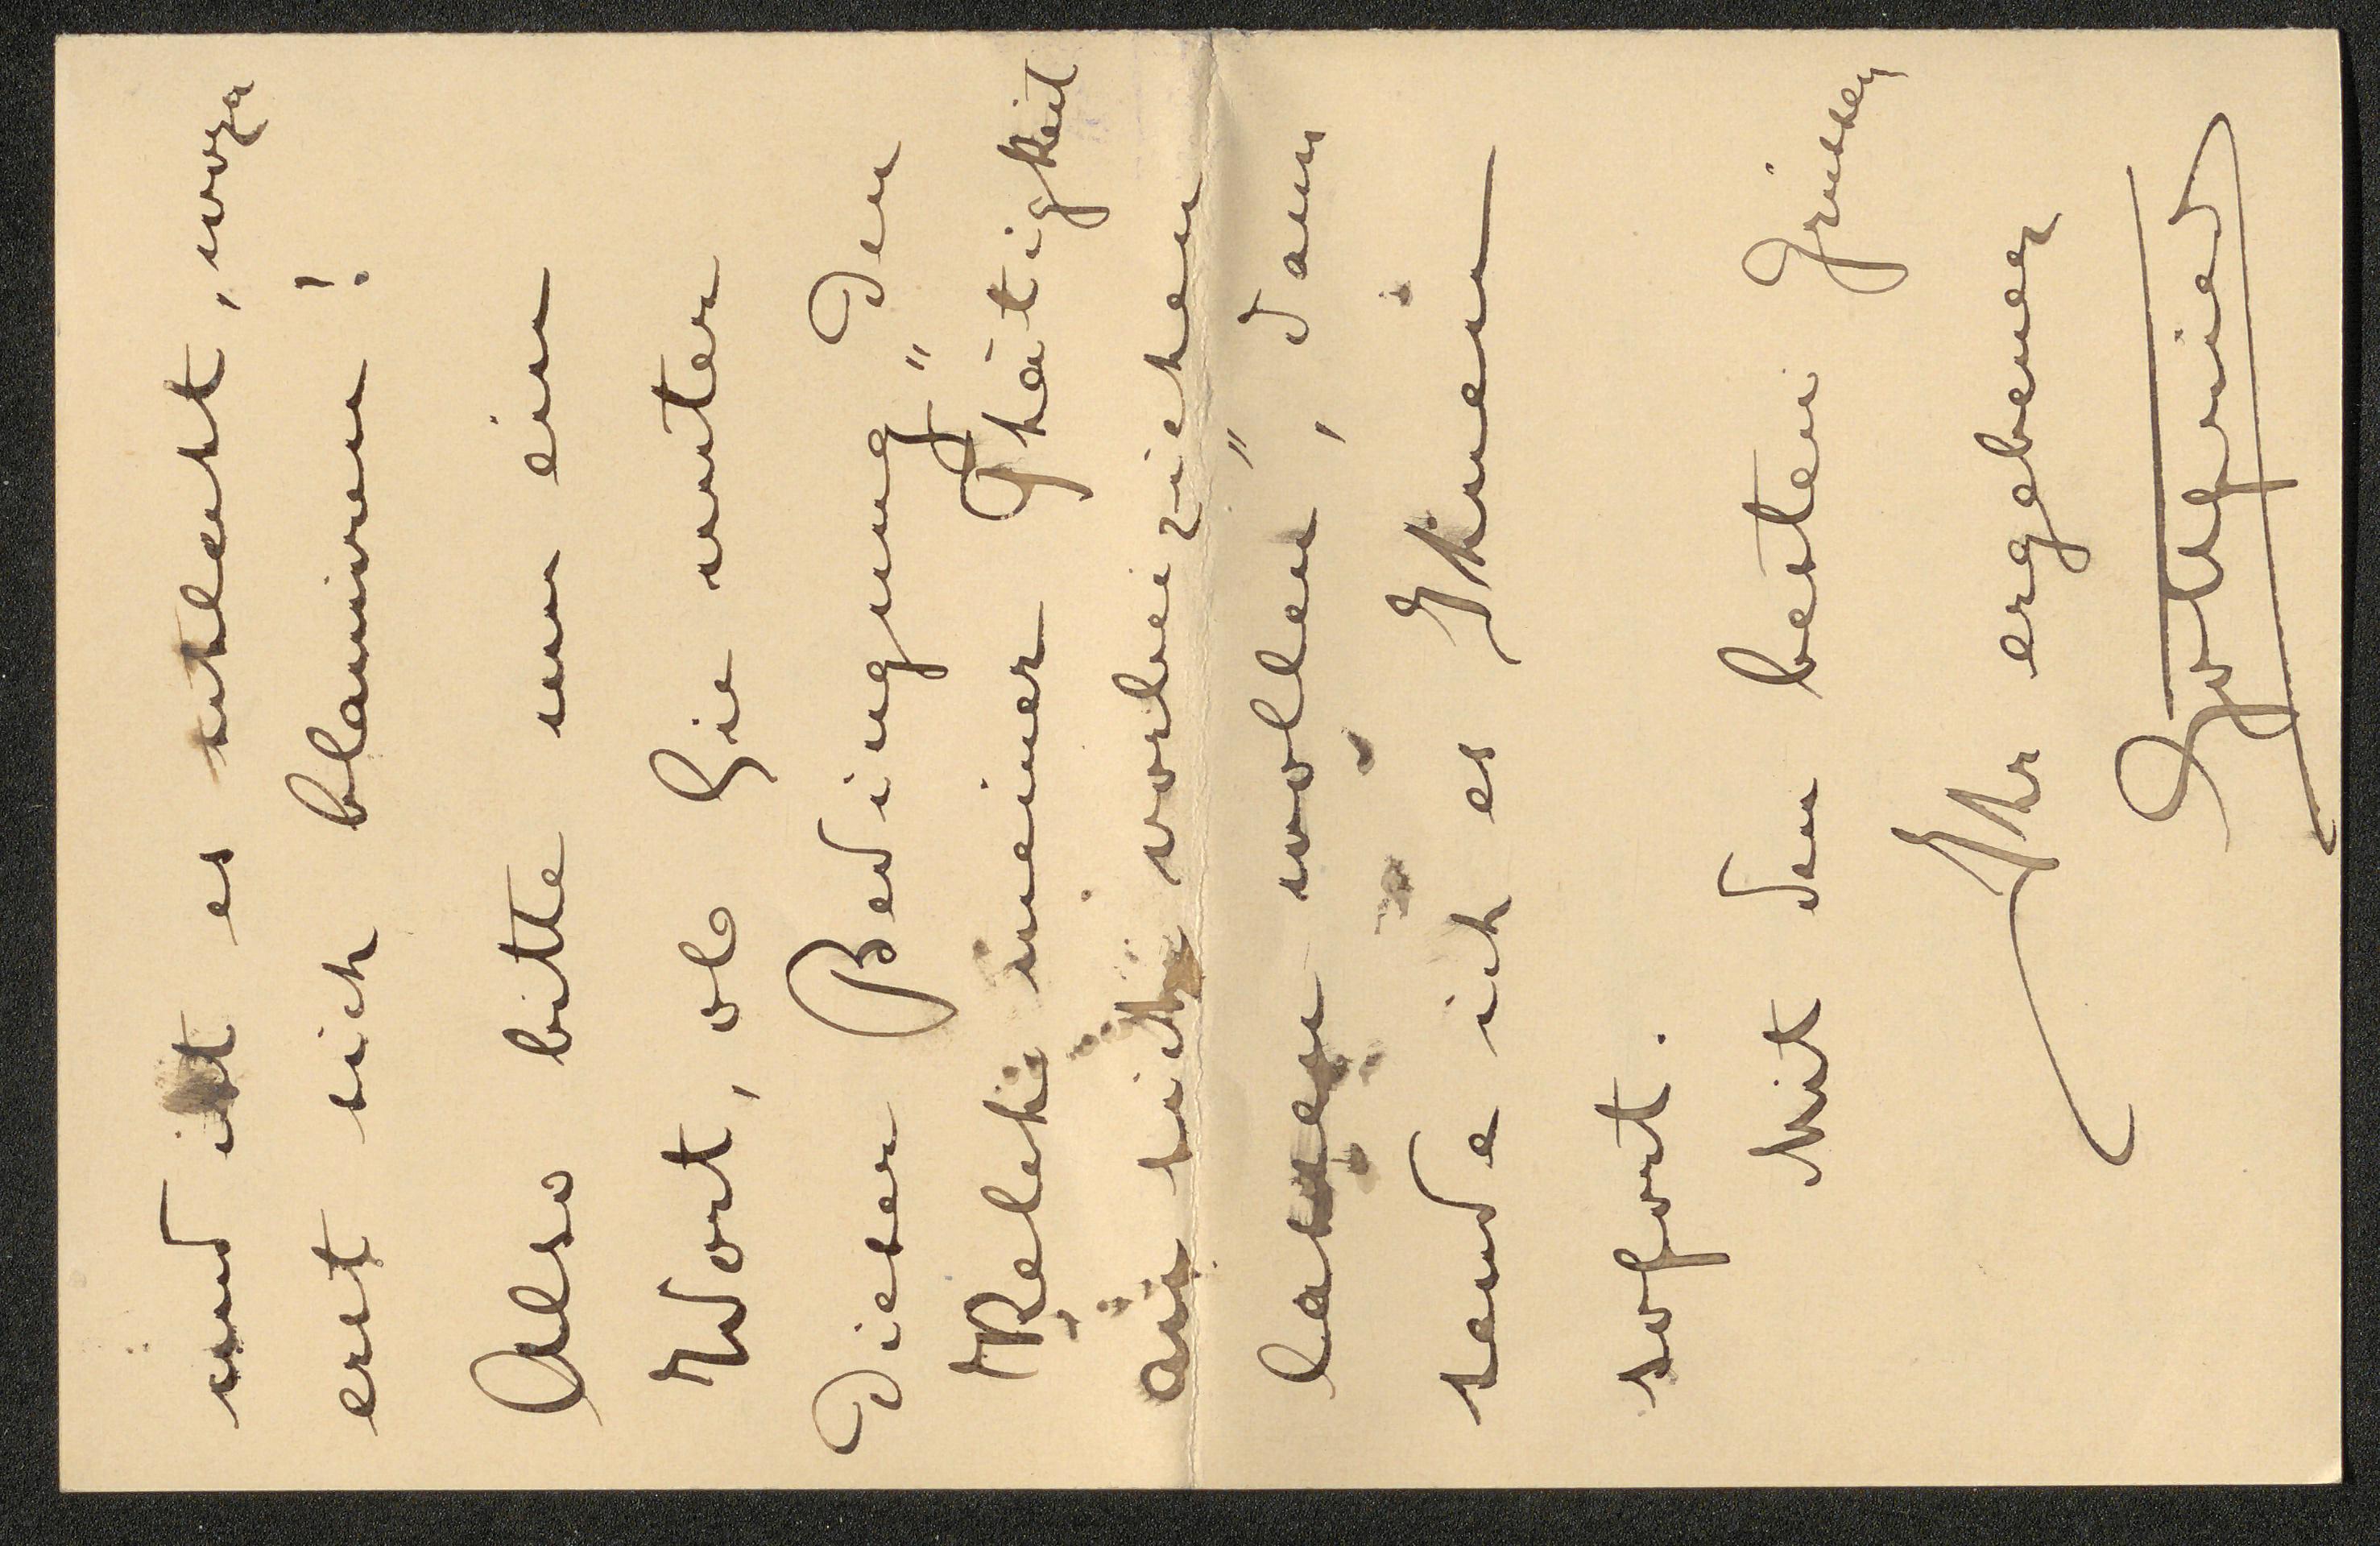 und ist es schlecht, wozu
erst sich blamiren!
Also bitte um ein
Wort, ob Sie unter
dieser Bedingung „den
Kelch meiner Thätigkeit
an sich vorbeiziehen
lassen wollen“, dann
sende ich es Ihnen
sofort.
Mit den besten Grüßen
Ihr ergebener